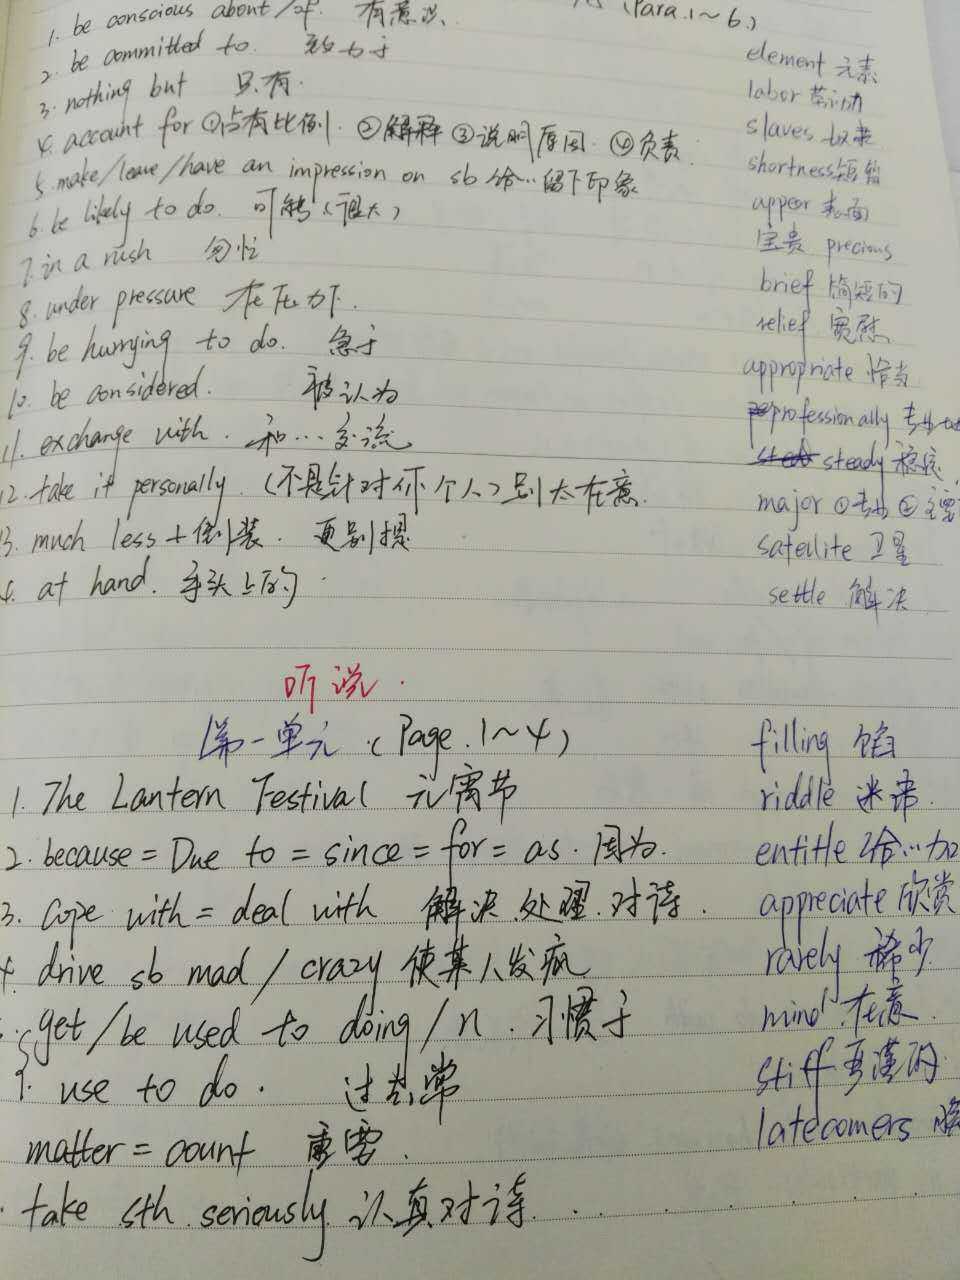 (Para.1~6)
1. be conscious about/of. 有意识.
2. be committed to. 致力于
3. nothing but 只有.
4. account for ①占有比例. ②解释 ③说明原因. ④负责.
5. make/leave/have an impression on sb 给…留下印象
6. be likely to do. 可能(很大)
7. in a rush 匆忙
8. under pressure 在压力下.
9. be hurrying to do. 急于
10. be considered. 被认为
11. exchange with. 和…交流
12. take it personally. (不是针对你个人)别太在意.
3. much less+倒装. 更别提
at hand. 手头上的.
element 元素
labor 劳动
slaves 奴隶
shortness 短暂
appear 表面
宝贵 precious
brief 简短的
relief 宽慰
appropriate 恰当
professionally 专业
steady 稳定
major ①专业 ②主要
satellite 卫星
settle 解决
听说.
第一单元 (Page.1~4)
1. The Lantern Festival 元宵节
2. because = Due to = since = for = as. 因为.
3. Cope with = deal with 解决.处理.对待.
4. drive sb mad / crazy 使某人发疯
get/be used to doing/n. 习惯于
use to do. 过去常
matter = count 重要.
take sth seriously. 认真对待.
filling 馅
riddle 迷语.
entitle 给…加
appreciate 欣赏
rarely 稀少.
mind 在意.
stiff
latecomers